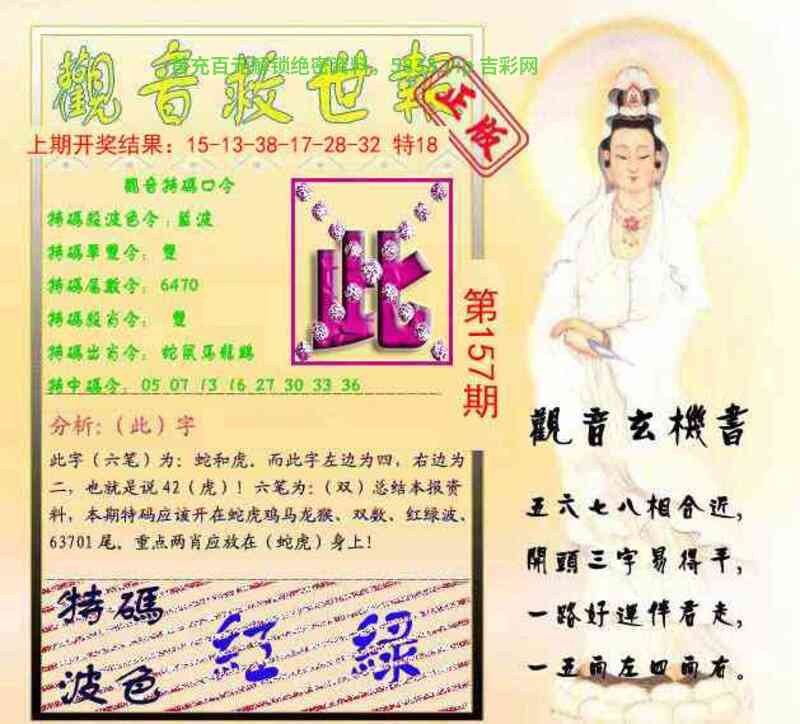 觀音救世報
首充百元解锁绝密资料: 吉彩网
正版
上期开奖结果：15-13-38-17-28-32 特18
觀音特碼口令
特碼殺波色令：藍波
特碼單雙令：雙
特碼尾數令：6470
特碼殺肖令：雙
特碼出肖令：蛇鼠馬龍鷄
特中碼令：05 07 13 16 27 30 33 36
此
第157期
分析:（此）字
此字（六笔）为：蛇和虎．而此字左边为四，右边为
二，也就是说42（虎）！六笔为：（双）总结本报资
料，本期特码应该开在蛇虎鸡马龙猴、双数、红绿波、
63701尾．重点两肖应放在（蛇虎）身上！
特碼
波色
紅 綠
觀音玄機書
五六七八相合近，
開頭三字易得平，
一路好運伴君走，
一五南左四南右。